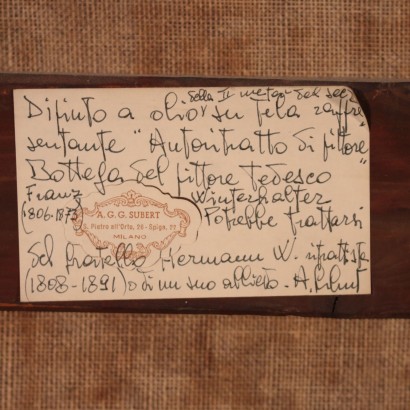 della II metà del sec.
Dipinto a olio su tela rappre
sentante "Autoritratto di pittore"
Bottega del pittore Tedesco
Franz Winterhalter
(1806-1873 Potrebbe trattarsi
A.G.G. SUBERT
S. Pietro all'Orto, 26 - Spiga, 22
MILANO
del fratello Hermann W. ritrattista
(1808-1891) o di un suo allievo - A. Subert